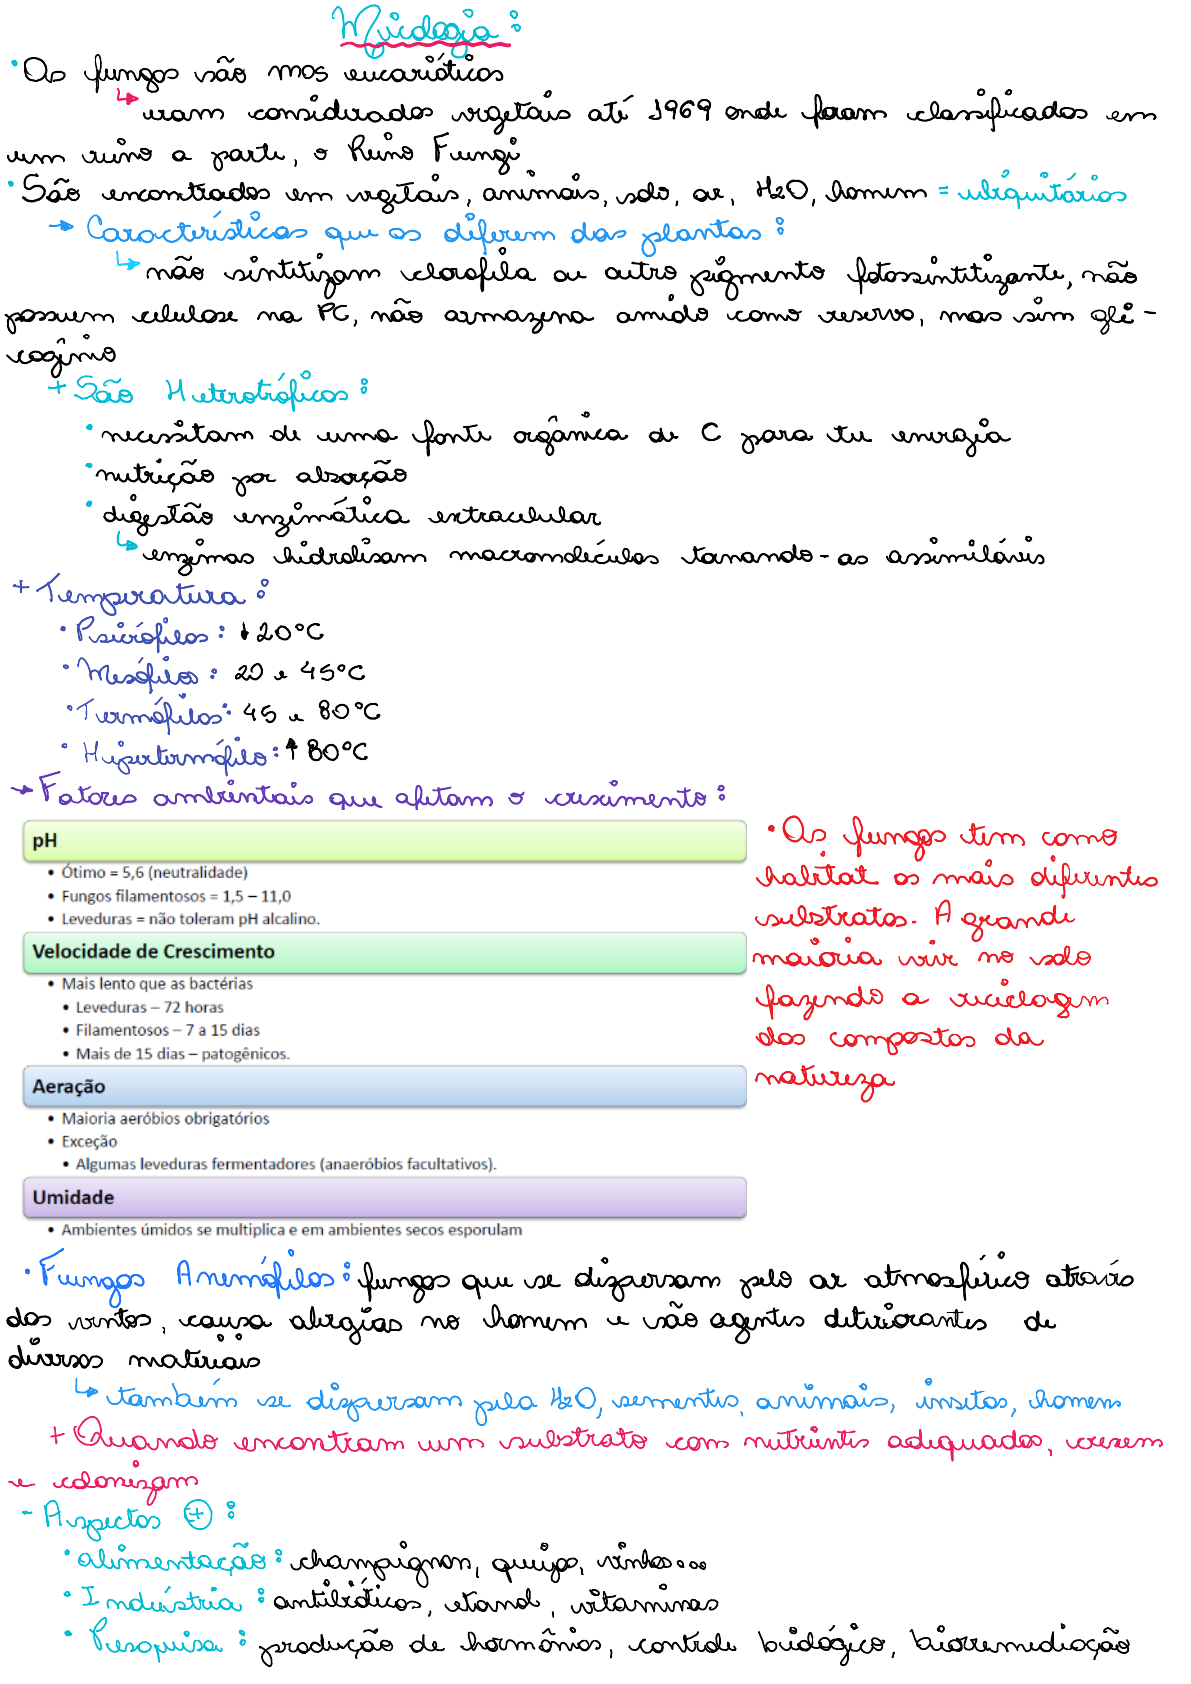 Micologia:
• Os fungos são mos eucarióticos
↳ eram considerados vegetais até 1969 onde foram classificados em
um reino a parte, o Reino Fungi
• São encontrados em vegetais, animais, solo, ar, H2O, homem = ubiquitários
→ Características que os diferem das plantas:
↳ não sintetizam clorofila ou outro pigmento fotossintetizante, não
possuem celulose na PC, não armazena amido como reserva, mas sim gli-
cogênio
+ São Heterotróficos:
• necessitam de uma fonte orgânica de C para ter energia
• nutrição por absorção
• digestão enzimática extracelular
↳ enzimas hidrolisam macromoléculas tornando-as assimiláveis
+ Temperatura:
• Psicrófilos: ↓20°C
• Mesófilos: 20 e 45°C
• Termófilos: 45 e 80°C
• Hipertermófilo: ↑ 80°C
→ Fatores ambientais que afetam o crescimento:
pH
• Ótimo = 5,6 (neutralidade)
• Fungos filamentosos = 1,5 – 11,0
• Leveduras = não toleram pH alcalino.
Velocidade de Crescimento
• Mais lento que as bactérias
• Leveduras – 72 horas
• Filamentosos – 7 a 15 dias
• Mais de 15 dias – patogênicos.
Aeração
• Maioria aeróbios obrigatórios
• Exceção
• Algumas leveduras fermentadores (anaeróbios facultativos).
Umidade
• Ambientes úmidos se multiplica e em ambientes secos esporulam
• Os fungos tem como
habitat os mais diferentes
substratos. A grande
maioria vive no solo
fazendo a reciclagem
dos compostos da
natureza
• Fungos Anemófilos: fungos que se dispersam pelo ar atmosférico através
dos ventos, causa alergias no homem e são agentes deteriorantes de
diversos materiais
↳ também se dispersam pela H2O, sementes, animais, insetos, homem
+ Quando encontram um substrato com nutrientes adequados, crescem
e colonizam
- Aspectos ⊕:
• alimentação: champignon, queijo, vinhos...
• Indústria: antibióticos, etanol, vitaminas
• Pesquisa: produção de hormônios, controle biológico, biorremediação